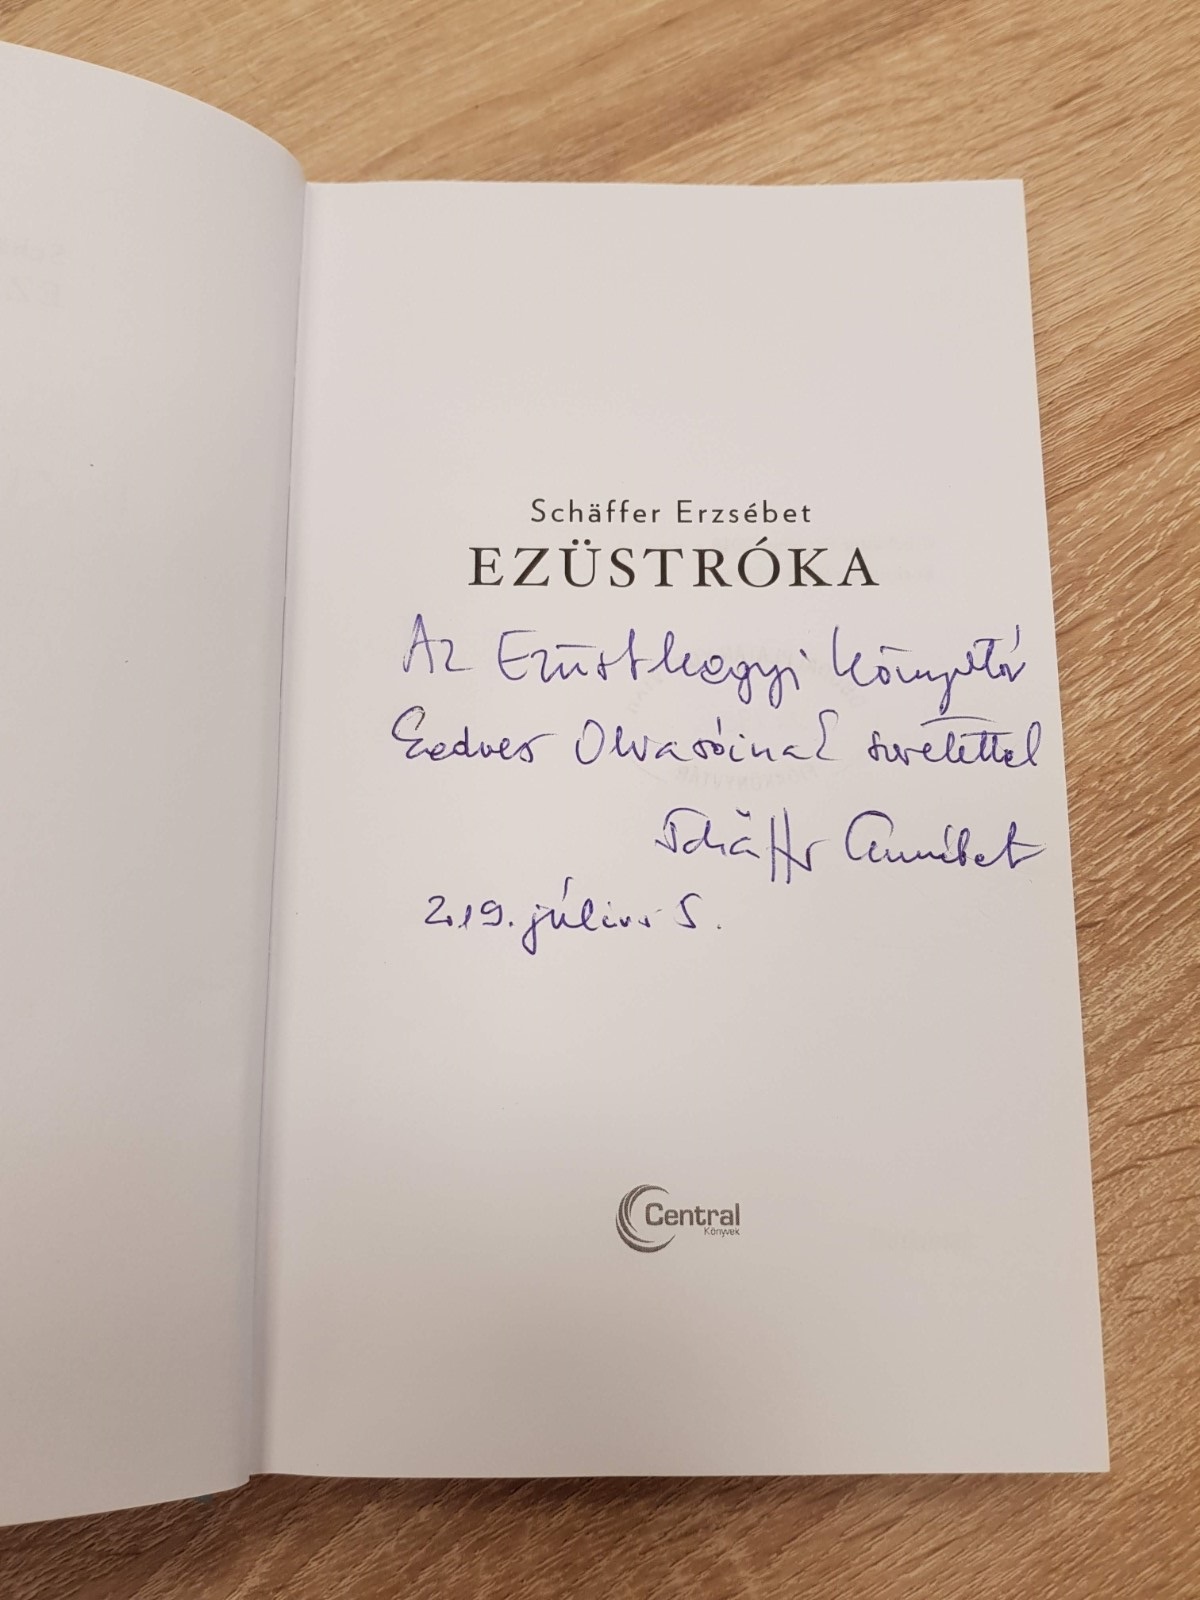 Schäffer Erzsébet
EZÜSTRÓKA
Az Ezüsthegyi Könyvtár
Kedves Olvasóinak szeretettel
Schäffer Erzsébet
2019. július 5.
Central
Könyvek